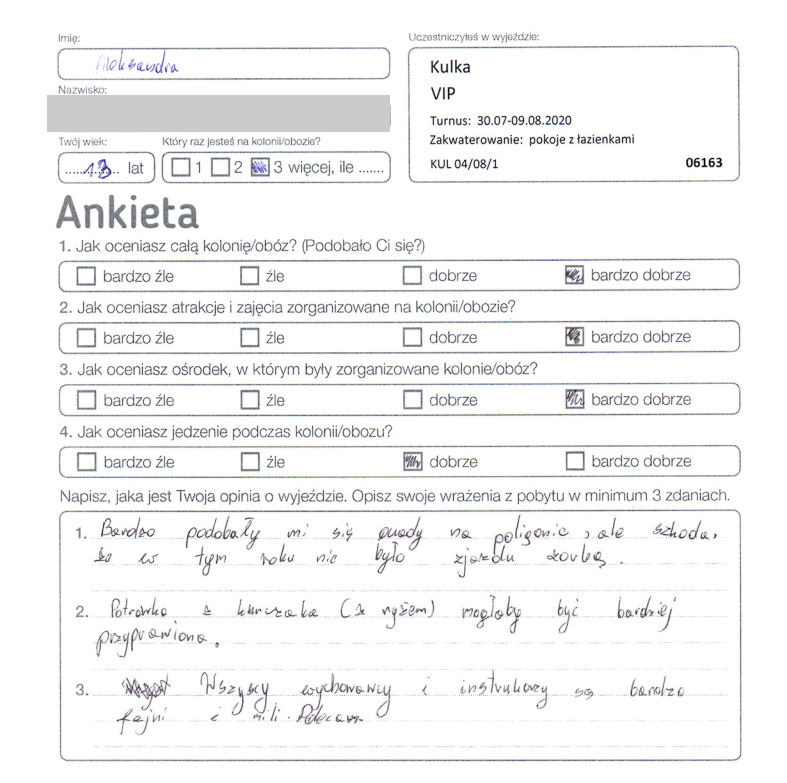 Imię:
Aleksandra
Uczestniczyłeś w wyjeździe:
Kulka
VIP
Turnus: 30.07-09.08.2020
Zakwaterowanie: pokoje z łazienkami
KUL 04/08/1 06163
Nazwisko:
Twój wiek:
Który raz jesteś na kolonii/obozie?
.....13.. lat
1 2 3 więcej, ile .......
Ankieta
1. Jak oceniasz całą kolonię/obóz? (Podobało Ci się?)
bardzo źle źle dobrze bardzo dobrze
2. Jak oceniasz atrakcje i zajęcia zorganizowane na kolonii/obozie?
bardzo źle źle dobrze bardzo dobrze
3. Jak oceniasz ośrodek, w którym były zorganizowane kolonie/obóz?
bardzo źle źle dobrze bardzo dobrze
4. Jak oceniasz jedzenie podczas kolonii/obozu?
bardzo źle źle dobrze bardzo dobrze
Napisz, jaka jest Twoja opinia o wyjeździe. Opisz swoje wrażenia z pobytu w minimum 3 zdaniach.
1. Bardzo podobały mi się quady na poligonie, ale szkoda,
że w tym roku nie było zjazdu zorbą.
2. Potrawka z kurczaka (z ryżem) mogłaby być bardziej
przyprawiona.
3. Wszyscy wychowawcy i instruktorzy są bardzo
fajni i mili. Polecam